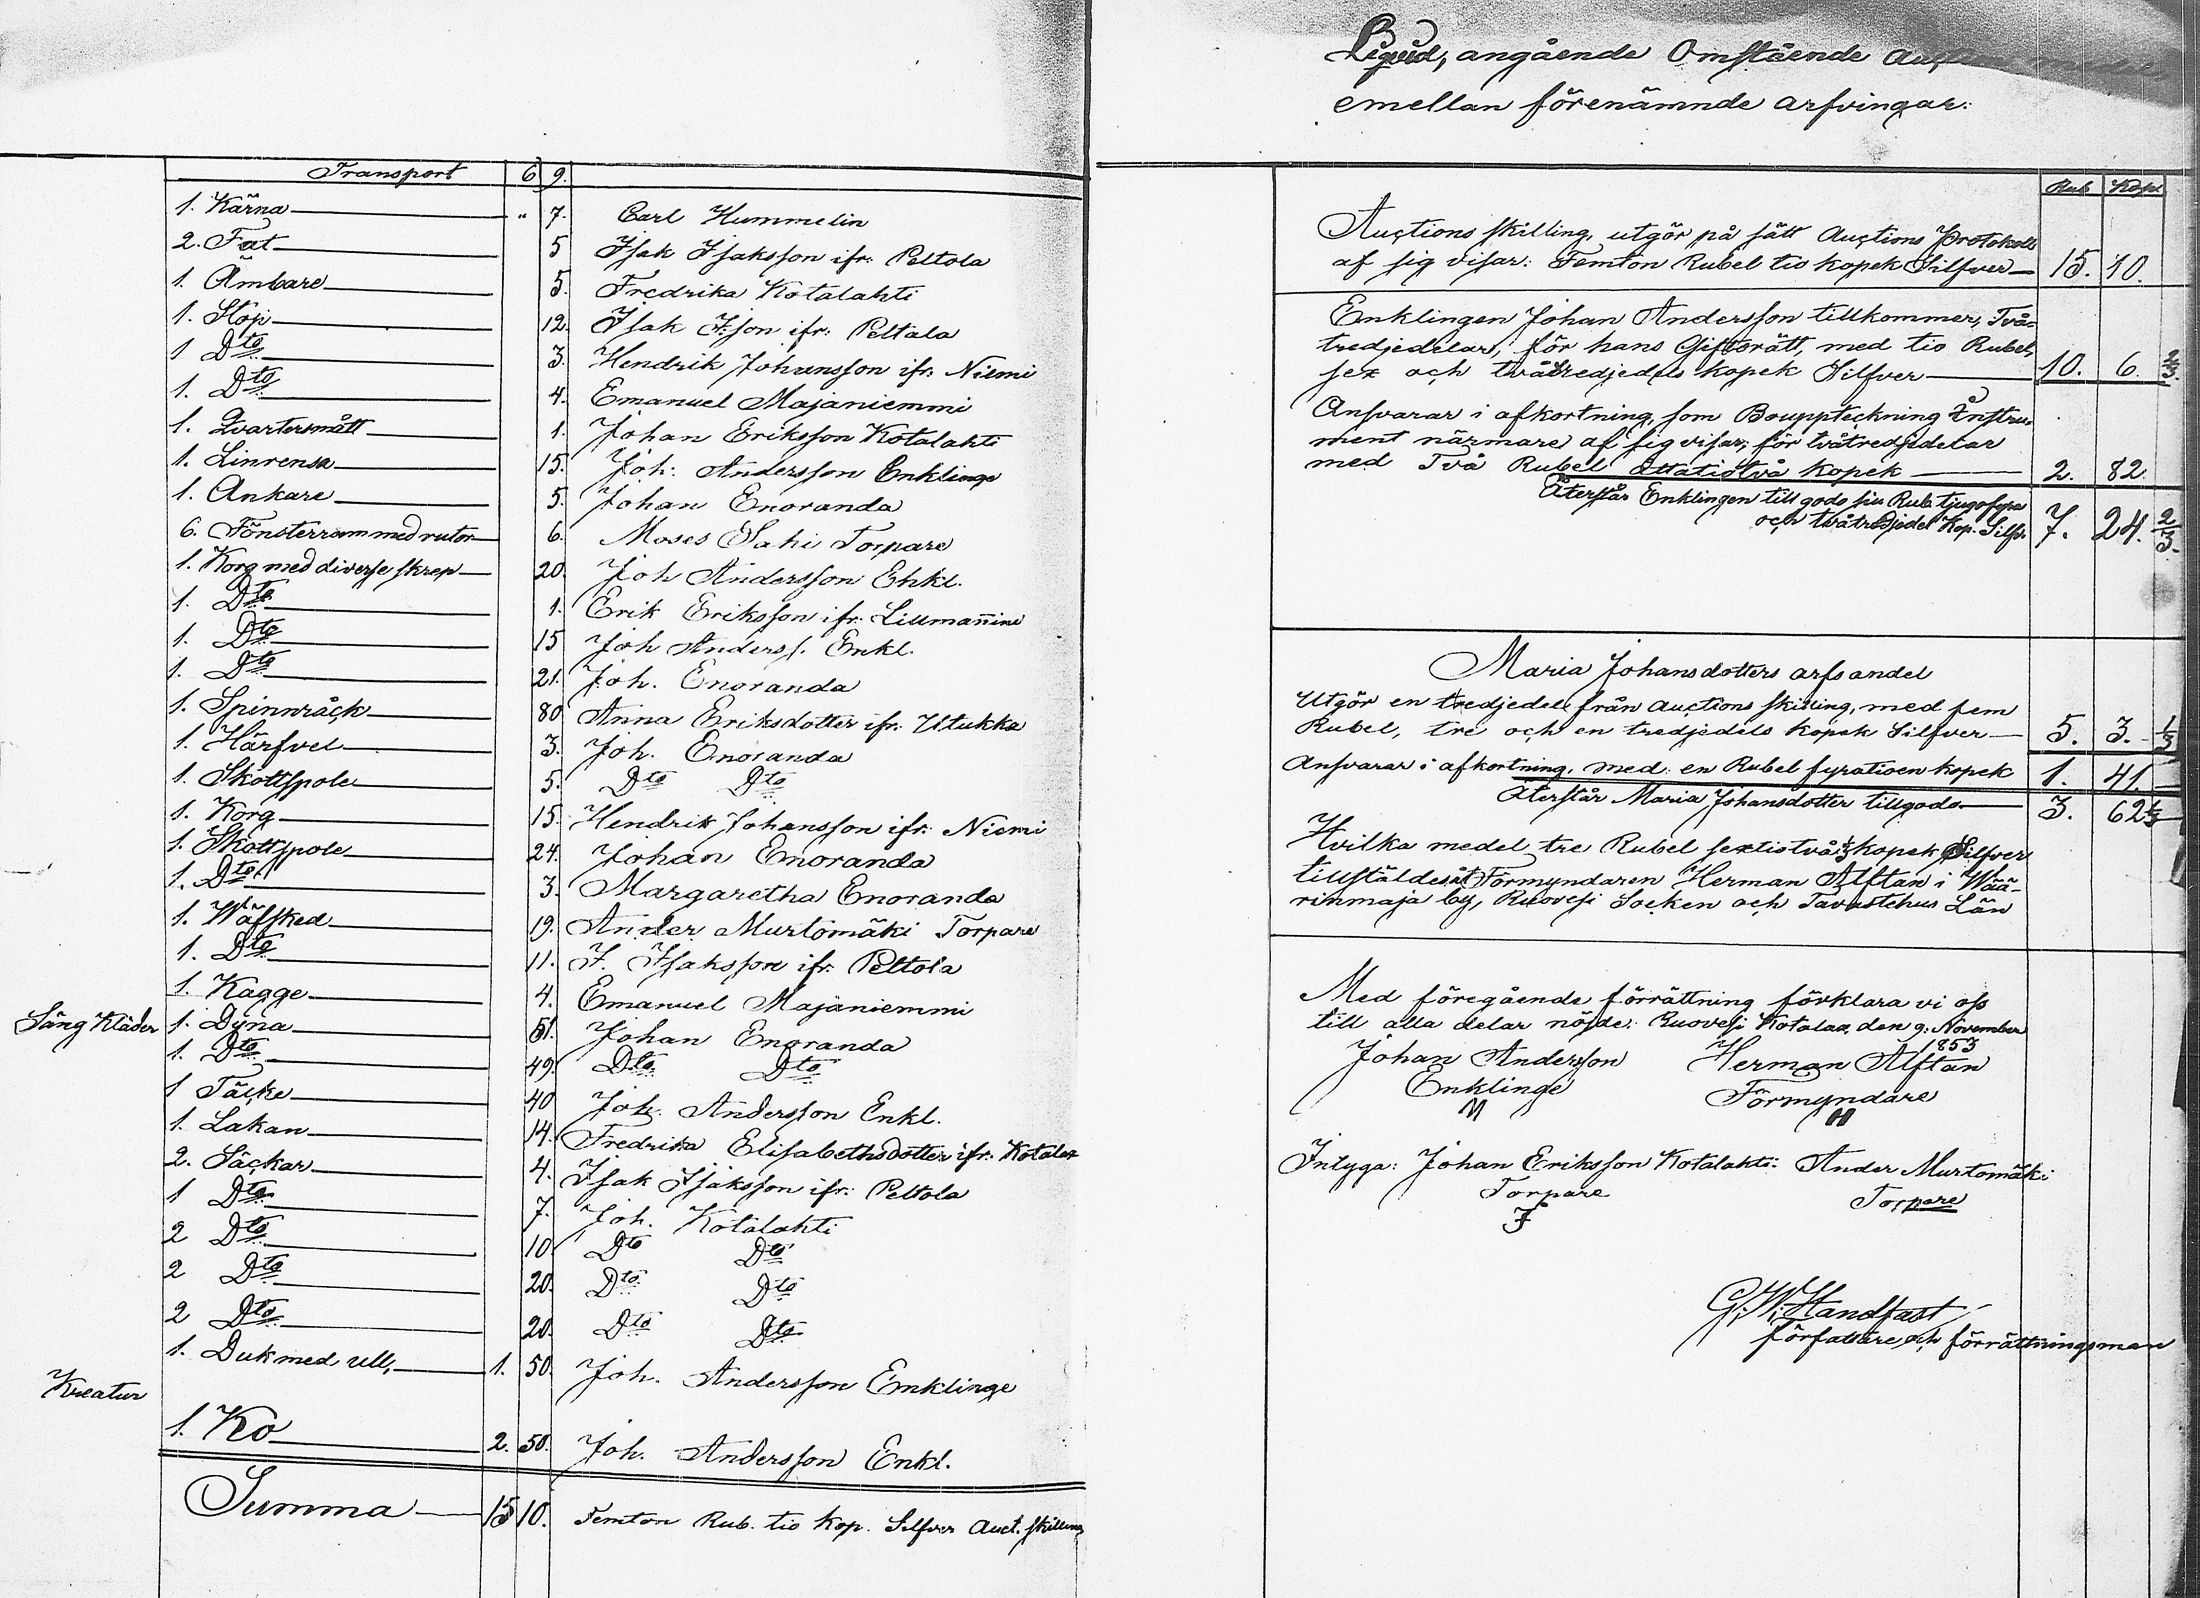 Transport 6 9.
1. Kärna " 7. Carl Hummelin
2. Fat 5 Isak Isaksson ifr: Peltola
1. Ämbare 5. Fredrika Kotalahti
1. Stop 12. Isak I:son ifr: Peltola
1 Dto 3. Hendrik Johansson ifr: Niemi
1. Dto 4. Emanuel Majaniemmi
1. Qvartersmått 1. Johan Eriksson Kotalahti
1. Linrensa 15. Joh: Andersson Enklinge
1. Ankare 5. Johan Enoranda
6. Fönsterram med rutor 6. Moses Sahi Torpare
1. Korg med diverse skrep 20. Joh Andersson Enkl.
1. Dto 1. Erik Eriksson ifr: Lillmannine
1. Dto 15 Joh Anderss. Enkl.
1. Dto 21. Joh. Enoranda
1. Spinnråck 80 Anna Eriksdotter ifr: Utukka
1. Härfvel 3. Joh. Enoranda
1. Skottspole 5. Dto Dto
1. Korg 15. Hendrik Johansson ifr: Niemi
1. Skottspole 24. Johan Enoranda
1. Dto 3. Margaretha Enoranda
1. Wäfsked 19. Ander Murtomäki Torpare
1. Dto 11. I. Isaksson ifr: Peltola
1. Kagge 4. Emanuel Majaniemmi
Säng Kläder 1. Dyna 51. Johan Enoranda
1. Dto 49. Dto Dto
1 Täcke 40 Joh. Andersson Enkl.
1. Lakan 14. Fredrika Elisabethsdotter ifr: Kotalax
2. Säckar 4. Isak Isaksson ifr: Peltola
1 Dto 7. Joh. Kotalahti
2 Dto 10. Dto Dto
2 Dto 20. Dto Dto
2 Dto 20. Dto Dto
1. Duk med ull, 1. 50. Joh. Andersson Enklinge
Kreatur
1. Ko 2. 50. Joh. Andersson Enkl.
Summa 15 10. Femton Rub. tio Kop. Silfver Auct. skilling
Liqvid, angående Omstående
emellan förenämnde arfvingar:
Rub Kope
Auctions skilling, utgör på sätt Auctions Protokoll
af sig visar: Femton Rubel tio kopek Silfver 15. 10.
Enklingen Johan Andersson tillkommer, Två-
tredjedelar, för hans Giftorätt, med tio Rubel,
sex och tvåtredjedels kopek Silfver 10. 6. 2/3.
Ansvarar i afkortning, som Bouppteckning Instru-
ment närmare af sig visar; för tvåtredjedelar
med Två Rubel åttatiotvå kopek 2. 82.
Återstår Enklingen till godo sju Rub. tjugofyra
och tvåtredjedel Kop. Silfv. 7. 24. 2/3.
Maria Johansdotters arfsandel
Utgör en tredjedel från auctions skilling, med fem
Rubel, tre och en tredjedels kopek Silfver 5. 3. 1/3
Ansvarar i afkortning, med en Rubel fyratioen kopek 1. 41.
Återstår Maria Johansdotter tillgodo 3. 62 1/3
Hvilka medel tre Rubel sextiotvå 1/3 kopek Silfver
tillstäldes åt Förmyndaren Herman Alftan i Wää-
rinmaja by, Ruovesi Socken och Tavastehus Län
Med föregående förrättning förklara vi oss
till alla delar nöjde: Ruovesi Kotalax, den 9. November
1853
Johan Andersson Herman Alftan
Enklinge Förmyndare
Intyga: Johan Eriksson Kotalahti: Ander Murtomäki
Torpare Torpare
G: W: Handfast
författare och förrättningsman